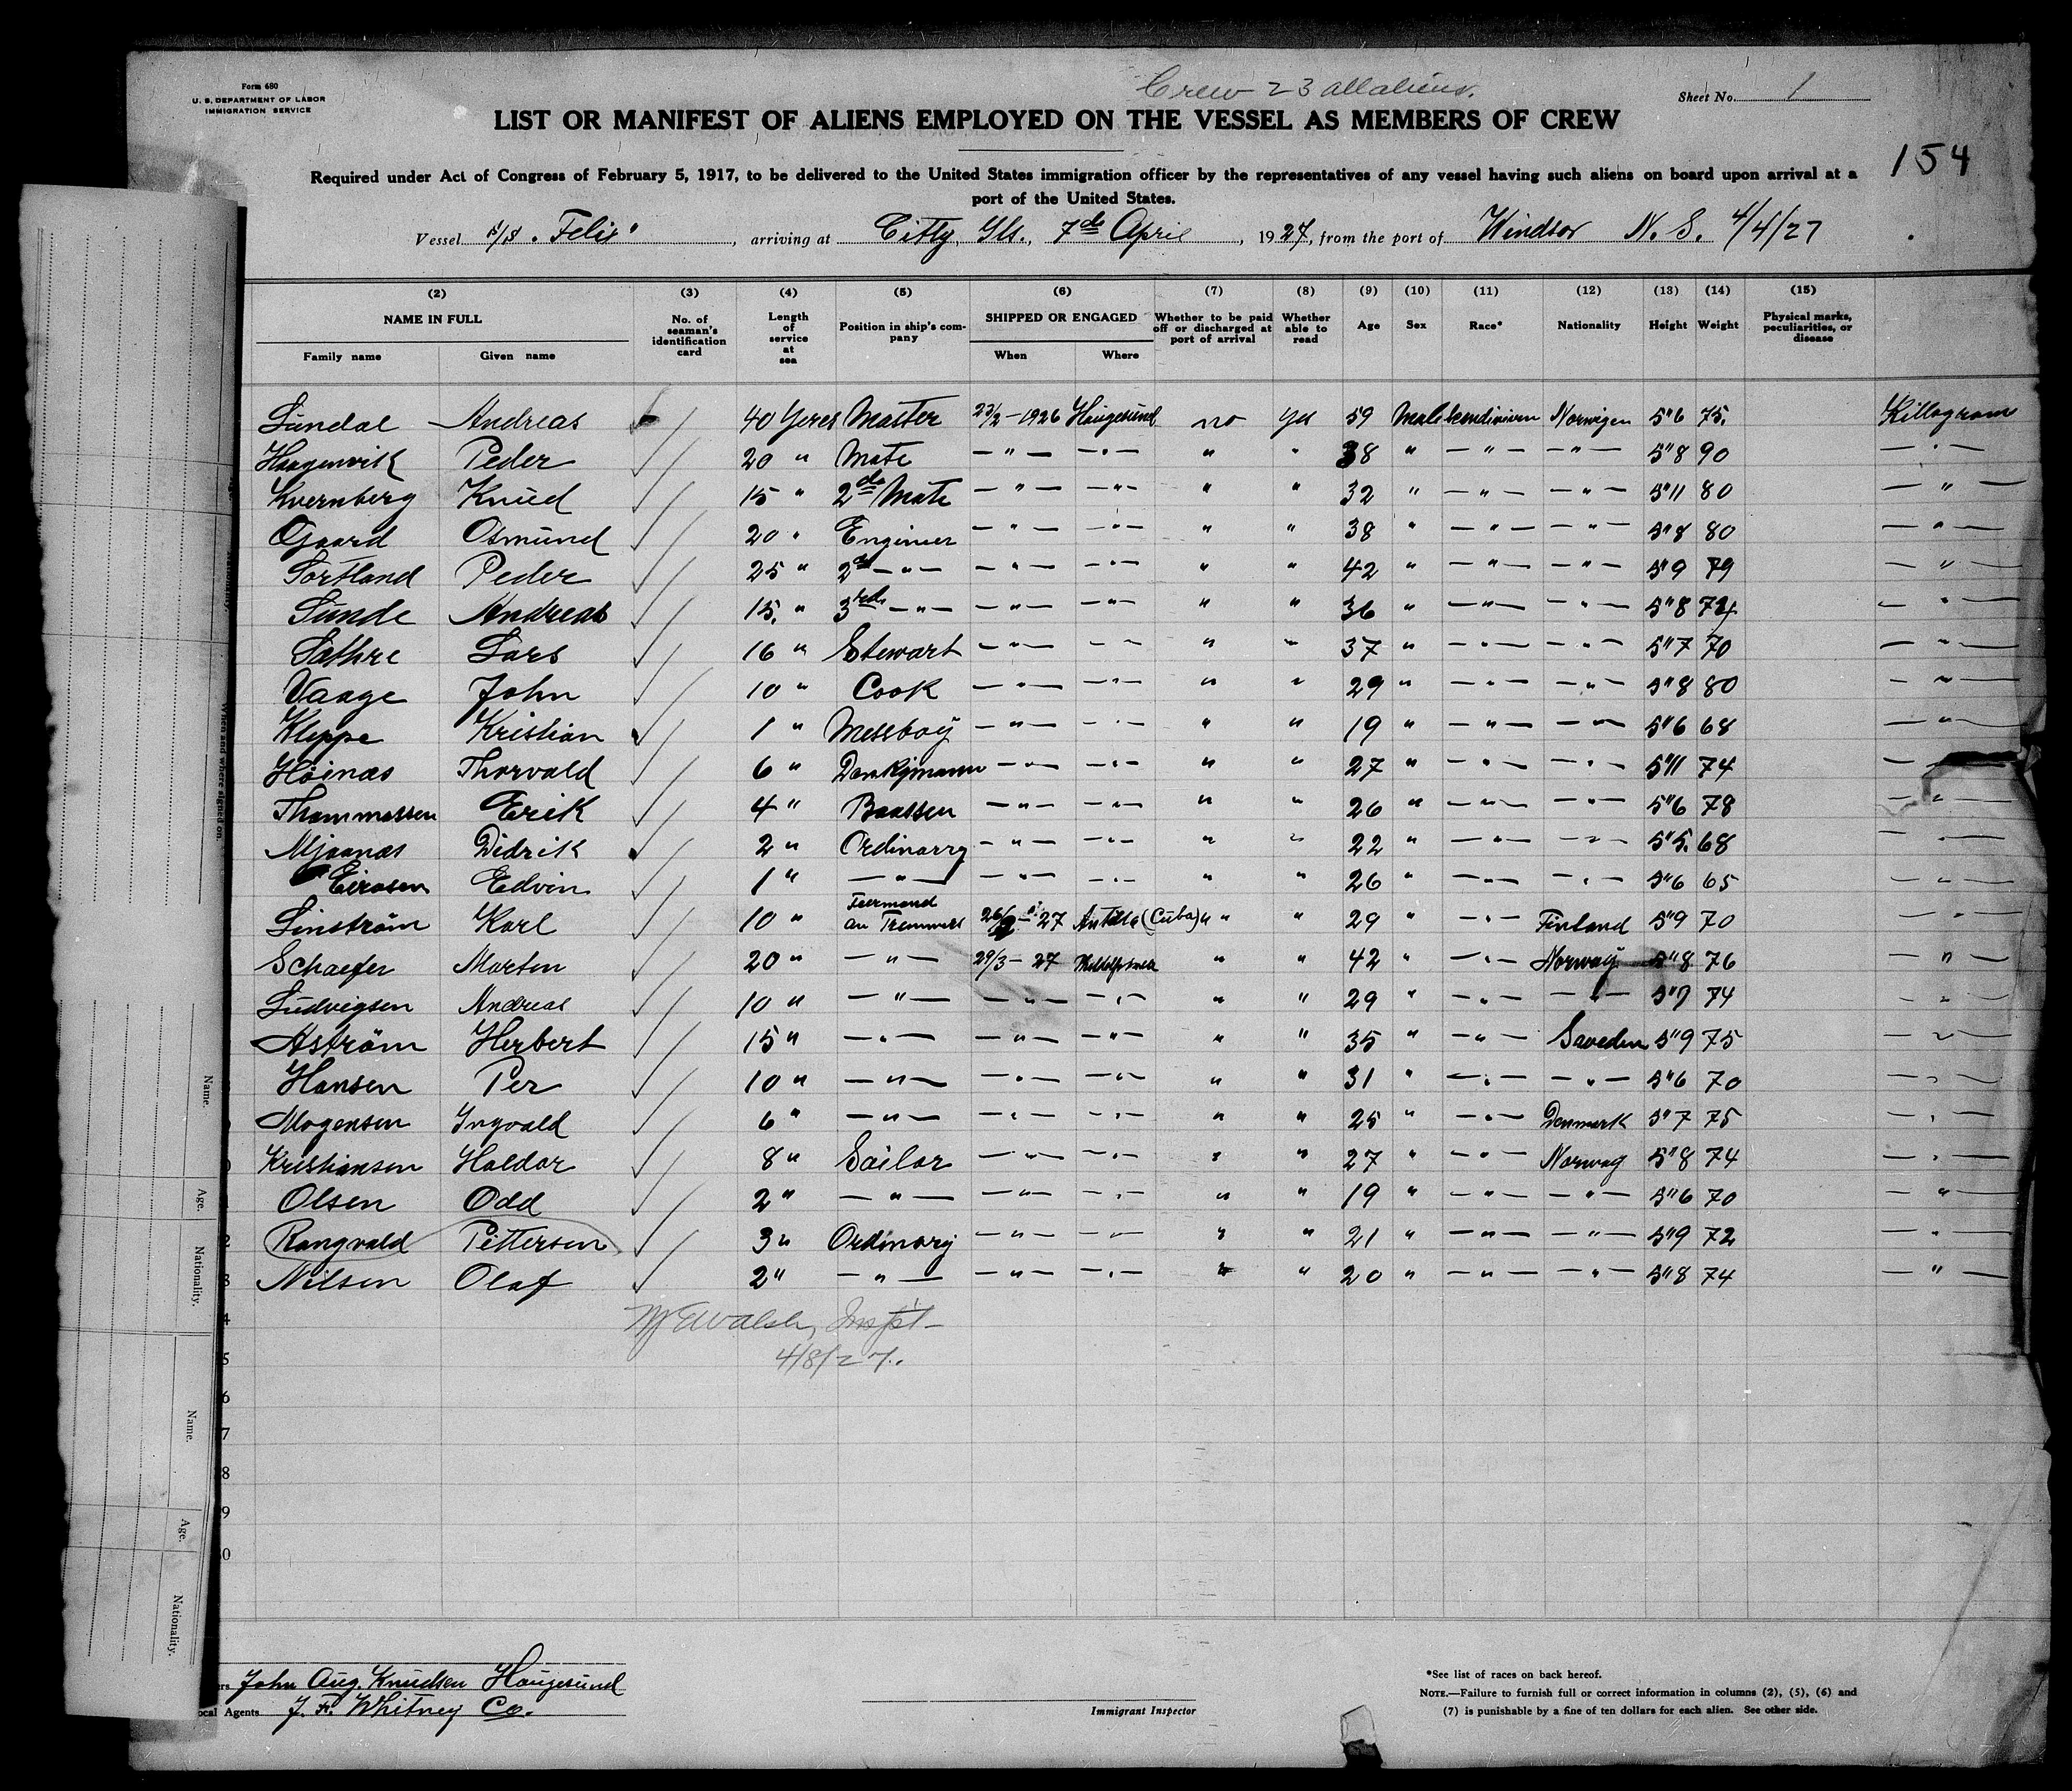 Crew 23 all aliens.
Form 680
U. S. DEPARTMENT OF LABOR
IMMIGRATION SERVICE
Sheet No. 1
LIST OR MANIFEST OF ALIENS EMPLOYED ON THE VESSEL AS MEMBERS OF CREW
154
Required under Act of Congress of February 5, 1917, to be delivered to the United States immigration officer by the representatives of any vessel having such aliens on board upon arrival at a
port of the United States.
Vessel S/S "Felix", arriving at 7de April, 1927, from the port of Windsor N. S. 4/4/27
(2) (3) (4) (5) (6) (7) (8) (9) (10) (11) (12) (13) (14) (15)
NAME IN FULL No. of seaman's identification card Length of service at sea Position in ship's company SHIPPED OR ENGAGED Whether to be paid off or discharged at port of arrival Whether able to read Age Sex Race* Nationality Height Weight Physical marks, peculiarities, or disease
Family name Given name When Where
Sundal Andreas 40 Yeres Master 23/2-1926 Haugesund no yes 59 Male Norwigen 5"6 75. Killogram
Haagenvik Peder 20 " Mate — " — — " — " " 38 " — " — — " — 5"8 90 — " —
Kvernberg Knud 15 " 2de Mate — " — — " — " " 32 " — " — — " — 5"11 80 — " —
Gaard Osmund 20 " Engineer — " — — " — " " 38 " — " — — " — 5"8 80 — " —
Sortland Peder 25 " 2d — " — — " — — " — " " 42 " — " — — " — 5"9 79 — " —
Sunde Andreas 15. " 3rde — " — — " — — " — " " 36 " — " — — " — 5"8 74 — " —
Sathre Lars 16 " Stewart — " — — " — " " 37 " — " — — " — 5"7 70 — " —
Vaage John 10 " Cook — " — — " — " " 29 " — " — — " — 5"8 80 — " —
Kleppe Kristian 1 " Messboy — " — — " — " " 19 " — " — — " — 5"6 68 — " —
Höinæs Thorvald 6 " Donkymann — " — — " — " " 27 " — " — — " — 5"11 74 — " —
Thommassen Erik 4 " Baassen — " — — " — " " 26 " — " — — " — 5"6 78 — " —
Mjaanæs Didrik 2 " Ordinarry — " — — " — " " 22 " — " — — " — 5"5. 68 — " —
Edvin 1 " — " — — " — — " — " " 26 " — " — — " — 5"6 65 — " —
Linström Karl 10 " 27 Antilla (Cuba) " " " 29 " — " — Finland 5"9 70 — " —
Schaefer Morten 20 " — " — 29/3 - 27 " " 42 " — " — Norway 5"8 76 — " —
Ludvigsen Andreas 10 " — " — — " — — " — " " 29 " — " — — " — 5"7 74 — " —
Aström Herbert 15 " — " — — " — — " — " " 35 " — " — Saveden 5"9 75 — " —
Hansen Per 10 " — " — — " — — " — " " 31 " — " — — " — 5"6 70 — " —
Mogensen Ingvald 6 " — " — — " — — " — " " 25 " — " — Denmark 5"7 75 — " —
Kristiansen Haldor 8 " Sailor — " — — " — " " 27 " — " — Norway 5"8 74 — " —
Olsen Odd 2 " — " — — " — — " — " " 19 " — " — — " — 5"6 70 — " —
Rangvald Pettersen 3 " Ordinary — " — — " — " " 21 " — " — — " — 5"9 72 — " —
Nilsen Olaf 2 " — " — — " — — " — " " 20 " — " — — " — 5"8 74 — " —
Walsh, Inspt
4/8/27.
Name.
Age.
Nationality.
Name.
Age.
Nationality.
When and where signed on.
John Aug. Knudsen Haugesund
ocal Agents J. F. Whitney Co.
Immigrant Inspector
*See list of races on back hereof.
NOTE.—Failure to furnish full or correct information in columns (2), (5), (6) and
(7) is punishable by a fine of ten dollars for each alien. See other side.